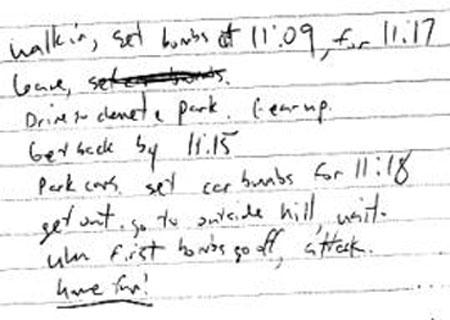 walk in, set bombs at 11:09, for 11:17
leave, set car bombs.
Drive to clemete park. Gear up.
Get back by 11:15
Park cars. set car bombs for 11:18
get out. go to outside hill, wait.
when first bombs go off, attack.
have fun!